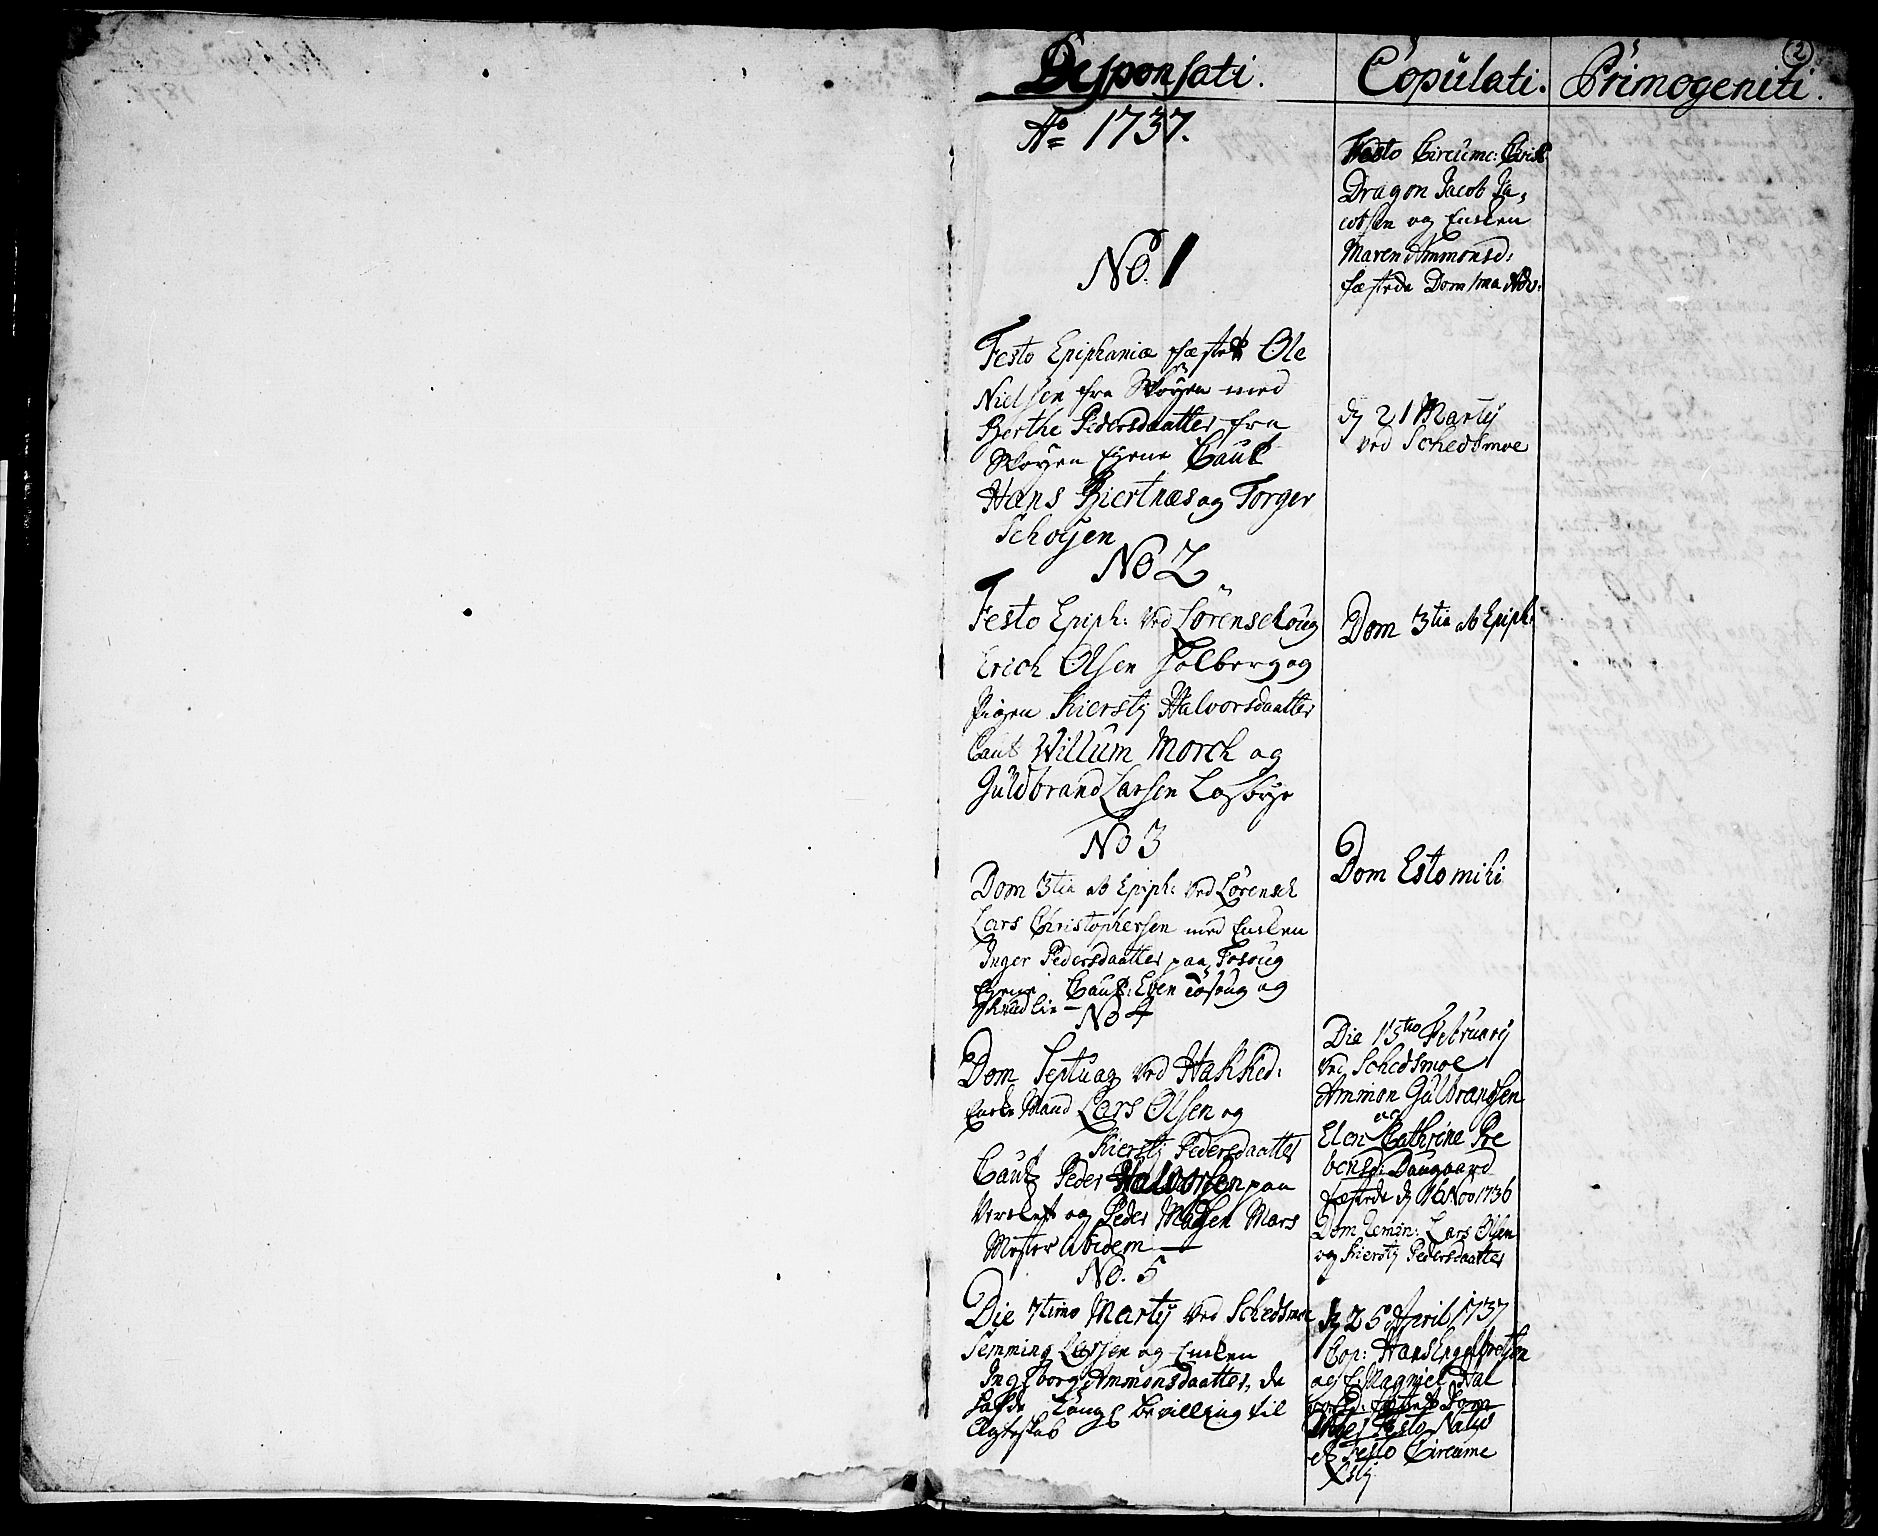 2
Desponsati. Copulati. Primogeniti.
Ao 1737.
No. 1
Festo Epiphaniæ fæstet Ole
Nielsen fra Skoyen med
Berthe Pedersdaatter fra
Skoyen Eyene Caut
Hans Biertnæs og Torger
Schoyen
No 2
Festo Epiph: ved Lörenschoug
Erich Olsen Solberg og
Pigen Kiersty Halvorsdaatter
Caut Willum Morch og
Guldbrand Larsen Losbye
No 3
Dom 3tia ab Epiph: ved Lörensch
Lars Christophersen med Enken
Inger Pedersdaatter paa Fosoug
Eyene Caut: Even Fosoug og
No 4
Dom Septuag ved Hakked:
Enke Mand Lars Olsen og
Kiersty Pedersdaatter
Caut Peder Halvorsen paa
Verket og Peder Madsen Mars
Mester ibidem
No. 5
Die 7timo Martij ved Schedsmoe
Semming Larsen og Enken
Ingeborg Ammonsdaatter, de
hafde Kongl bevilling til
Ægteskab
Festo Circumc: Christi
Dragon Jacob Ja,
cobsen og Enken
Maren Ammonsd:
fæstede Dom 1ma Adv:
dn 21 Martij
ved Schedsmoe
Dom 3tia ab Epiph:
Dom Estomihi
Die 15to Februarij
ved Schedsmoe
Ammon Guldbrandsen
og
Elen Cathrine Pre
bensd: Daugaard
fæstede dn 16 Nov 1736
Dom Remin: Lars Olsen
og Kiersty Pedersdaatter
dn 25 April 1737
Cop: Hans Engelbretsen
og Magniel Hal
vorsd: fæstet Dom
Festo Nativ
et Festo Circumc
Xsti